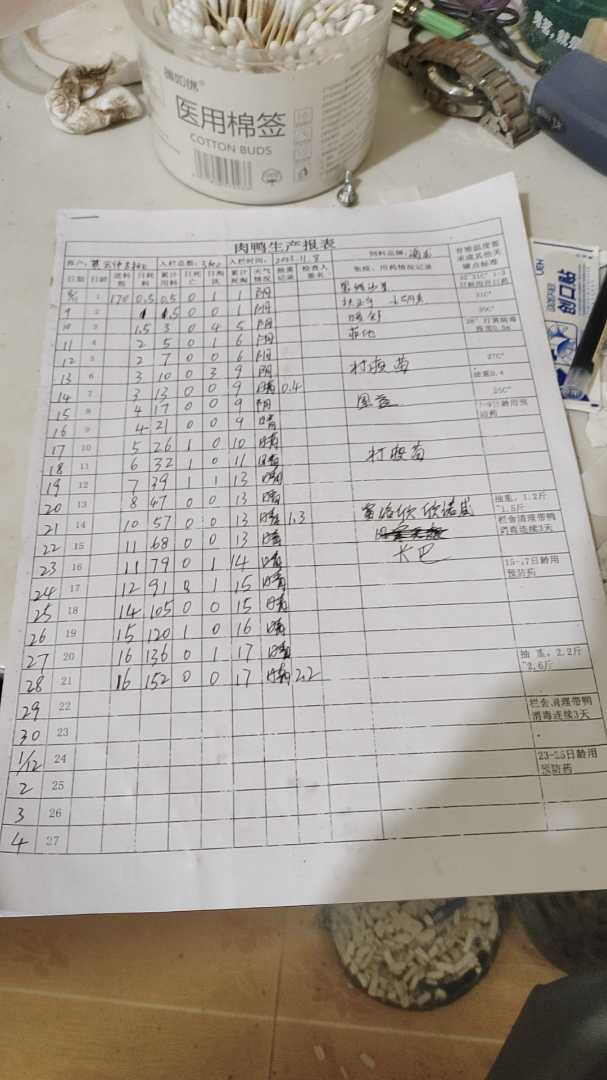 医用棉签
COTTON BUDS
肉鸭生产报表
入栏总数: 入栏时间: 饲料品牌:
日期 日龄 进料数 日耗料 累计用料 日死亡 日淘汰 累计死淘 天气情况 抽重记录 检查人签名 免疫、用药情况记录 育雏温度要求或其他关键点标准
1 170 0.5 0.5 0 1 1 阴
9 2 1 1.5 0 0 1 阴 31C°
10 3 1.5 3 0 4 5 阴 30C°
11 4 2 5 0 1 6 阴
12 5 2 7 0 0 6 阴
13 6 3 10 0 3 9 阴 打疫苗 27C°
14 7 3 13 0 0 9 晴 0.4 抽重0.4
15 8 4 17 0 0 9 阴 25C°
16 9 4 21 0 0 9 晴 7-9日龄用预防药
17 10 5 26 1 0 10 晴
18 11 6 32 1 0 11 晴 打疫苗
19 12 7 39 1 1 13 晴
20 13 8 47 0 0 13 晴
21 14 10 57 0 0 13 晴 1.3 抽重，1.2斤~1.5斤
22 15 11 68 0 0 13 晴 栏舍清理带鸭消毒连续3天
23 16 11 79 0 1 14 晴
24 17 12 91 0 1 15 晴 15-17日龄用预防药
25 18 14 105 0 0 15 晴
26 19 15 120 1 0 16 晴
27 20 16 136 0 1 17 晴
28 21 16 152 0 0 17 晴 2.2 抽重，2.2斤~2.6斤
29 22 栏舍清理带鸭消毒连续3天
30 23
1/12 24 23-25日龄用预防药
2 25
3 26
4 27